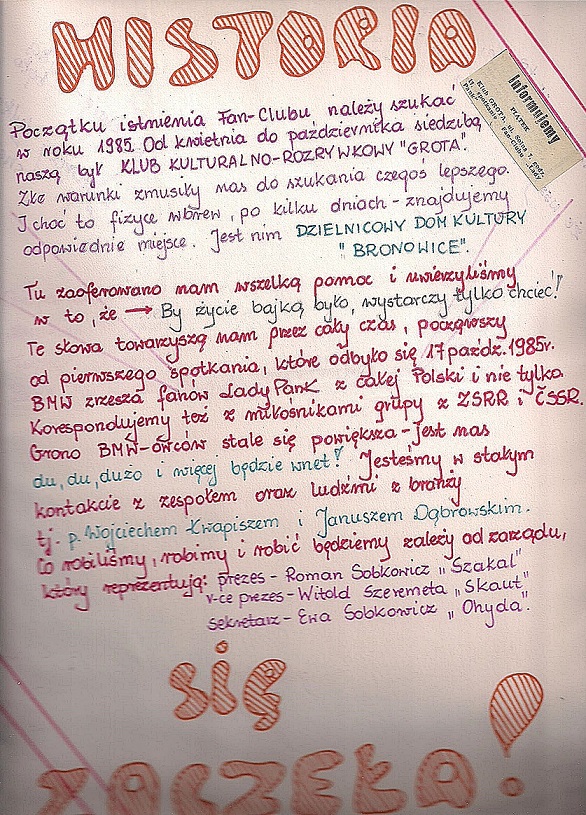 HISTORIA
Informujemy
PIĄTEK
Klub GROTA, ul.
Początku istnienia Fan-Clubu należy szukać
w roku 1985. Od kwietnia do października siedzibą
naszą był KLUB KULTURALNO-ROZRYWKOWY "GROTA".
Złe warunki zmusiły nas do szukania czegoś lepszego.
I choć to fizyce wbrew, po kilku dniach - znajdujemy
odpowiednie miejsce. Jest nim DZIELNICOWY DOM KULTURY
"BRONOWICE".
Tu zaoferowano nam wszelką pomoc i uwierzyliśmy
w to, że → By życie bajką było, wystarczy tylko chcieć!
Te słowa towarzyszą nam przez cały czas, począwszy
od pierwszego spotkania, które odbyło się 17 paźdz. 1985r.
BMW zrzesza fanów Lady Pank z całej Polski i nie tylko.
Korespondujemy też z miłośnikami grupy z ZSRR i ČSSR.
Grono BMW-owców stale się powiększa - jest nas
du, du, dużo i więcej będzie wnet! Jesteśmy w stałym
kontakcie z zespołem oraz ludźmi z branży
tj. p. Wojciechem Kwapiszem i Januszem Dąbrowskim.
Co robiliśmy, robimy i robić będziemy zależy od zarządu,
który reprezentują: prezes - Roman Sobkowicz „Szakal"
v-ce prezes - Witold Szeremeta „Skaut"
sekretarz - Ewa Sobkowicz „Ohyda".
się
ZACZĘŁA!